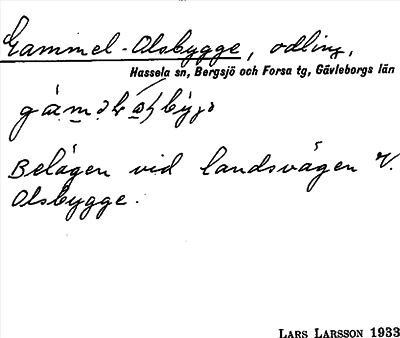 Gammel-Olsbygge, odling,
Hassela sn, Bergsjö och Forsa tg, Gävleborgs län
Belägen vid landsvägen V.
Olsbygge.
LARS LARSSON 1933